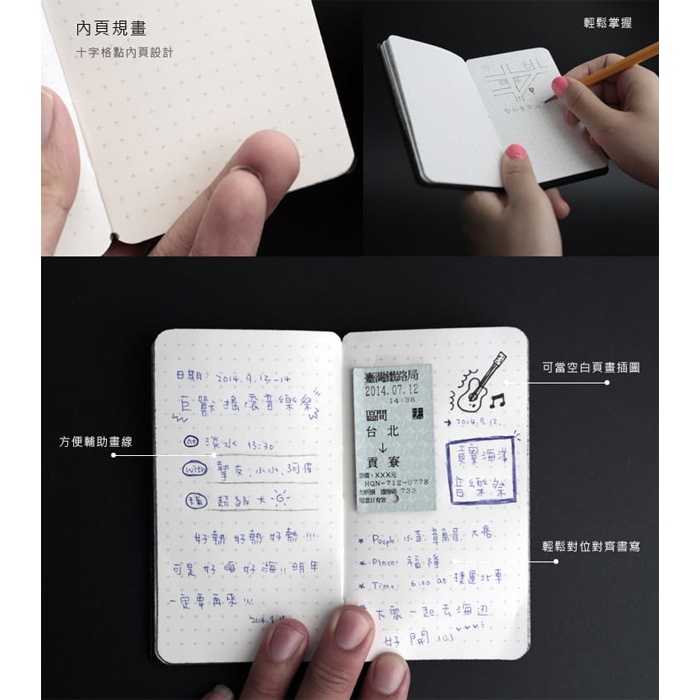 內頁規畫
十字格點內頁設計
輕鬆掌握
日期: 2014.9.13-14
巨獸搖滾音樂祭
at 淡水 13:30
with 摯友、小小、
好熱好熱好熱!!!
可是好嗨好嗨!! 明年
一定要再來!!!
方便輔助畫線
臺灣鐵路局
2014.07.12
14:38
區間
台北
↓
貢寮
票價:XXX元
HQN-712-0778
可當空白頁畫插圖
→ 2014.7.12.
貢寮海洋
音樂祭
輕鬆對位對齊書寫
People:
Place: 福隆
Time: 6:00 at 捷運北車
大家一起去海邊
好開心